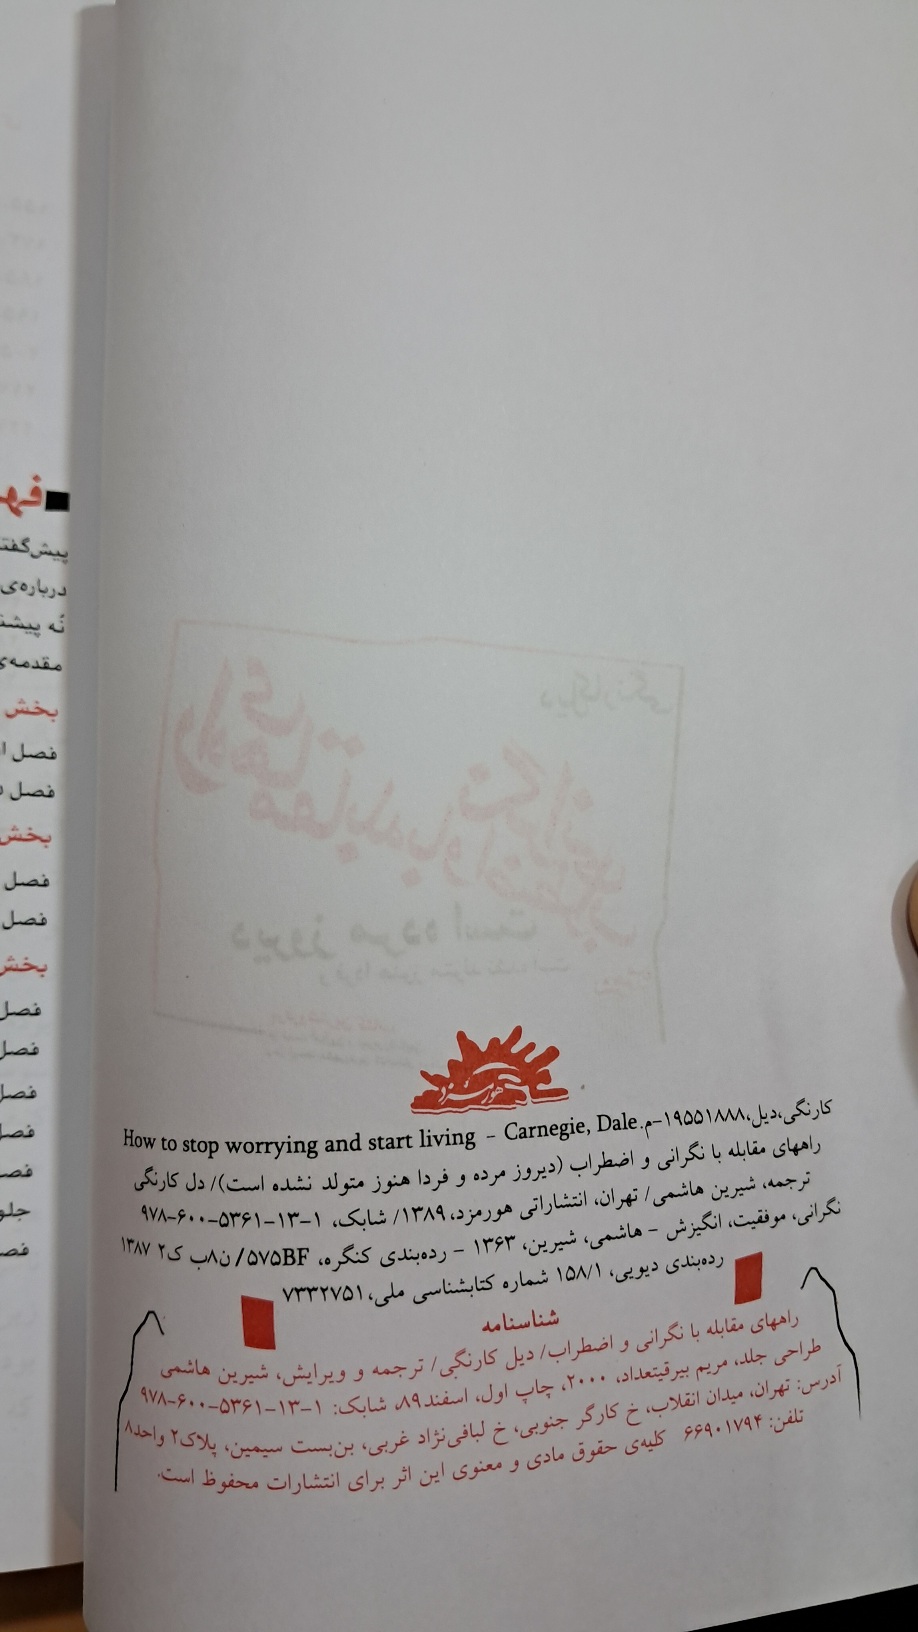 فهر
پیش‌گفتا
درباره‌ی
نُه پیشن
مقدمه‌ی
بخش
فصل ا
فصل د
بخش
فصل
فصل
بخش
فصل
فصل
فصل
فصل
فصل
جلو
فصل
هورمزد
کارنگی،دیل،۱۹۵۵۱۸۸۸-م.Carnegie, Dale – How to stop worrying and start living
راههای مقابله با نگرانی و اضطراب (دیروز مرده و فردا هنوز متولد نشده است)/ دل کارنگی
ترجمه، شیرین هاشمی/ تهران، انتشاراتی هورمزد،۱۳۸۹/ شابک، ۱-۱۳-۵۳۶۱-۶۰۰-۹۷۸
نگرانی، موفقیت، انگیزش – هاشمی، شیرین، ۱۳۶۳ – رده‌بندی کنگره، ۵۷۵BF/ن۸ب ک۲ ۱۳۸۷
رده‌بندی دیویی، ۱۵۸/۱ شماره کتابشناسی ملی،۷۳۳۲۷۵۱
شناسنامه
راههای مقابله با نگرانی و اضطراب/ دیل کارنگی/ ترجمه و ویرایش، شیرین هاشمی
طراحی جلد، مریم بیرقیتعداد، ۲۰۰۰، چاپ اول، اسفند۸۹، شابک: ۱-۱۳-۵۳۶۱-۶۰۰-۹۷۸
آدرس: تهران، میدان انقلاب، خ کارگر جنوبی، خ لبافی‌نژاد غربی، بن‌بست سیمین، پلاک۲ واحد۸
تلفن: ۶۶۹۰۱۷۹۴ کلیه‌ی حقوق مادی و معنوی این اثر برای انتشارات محفوظ است.